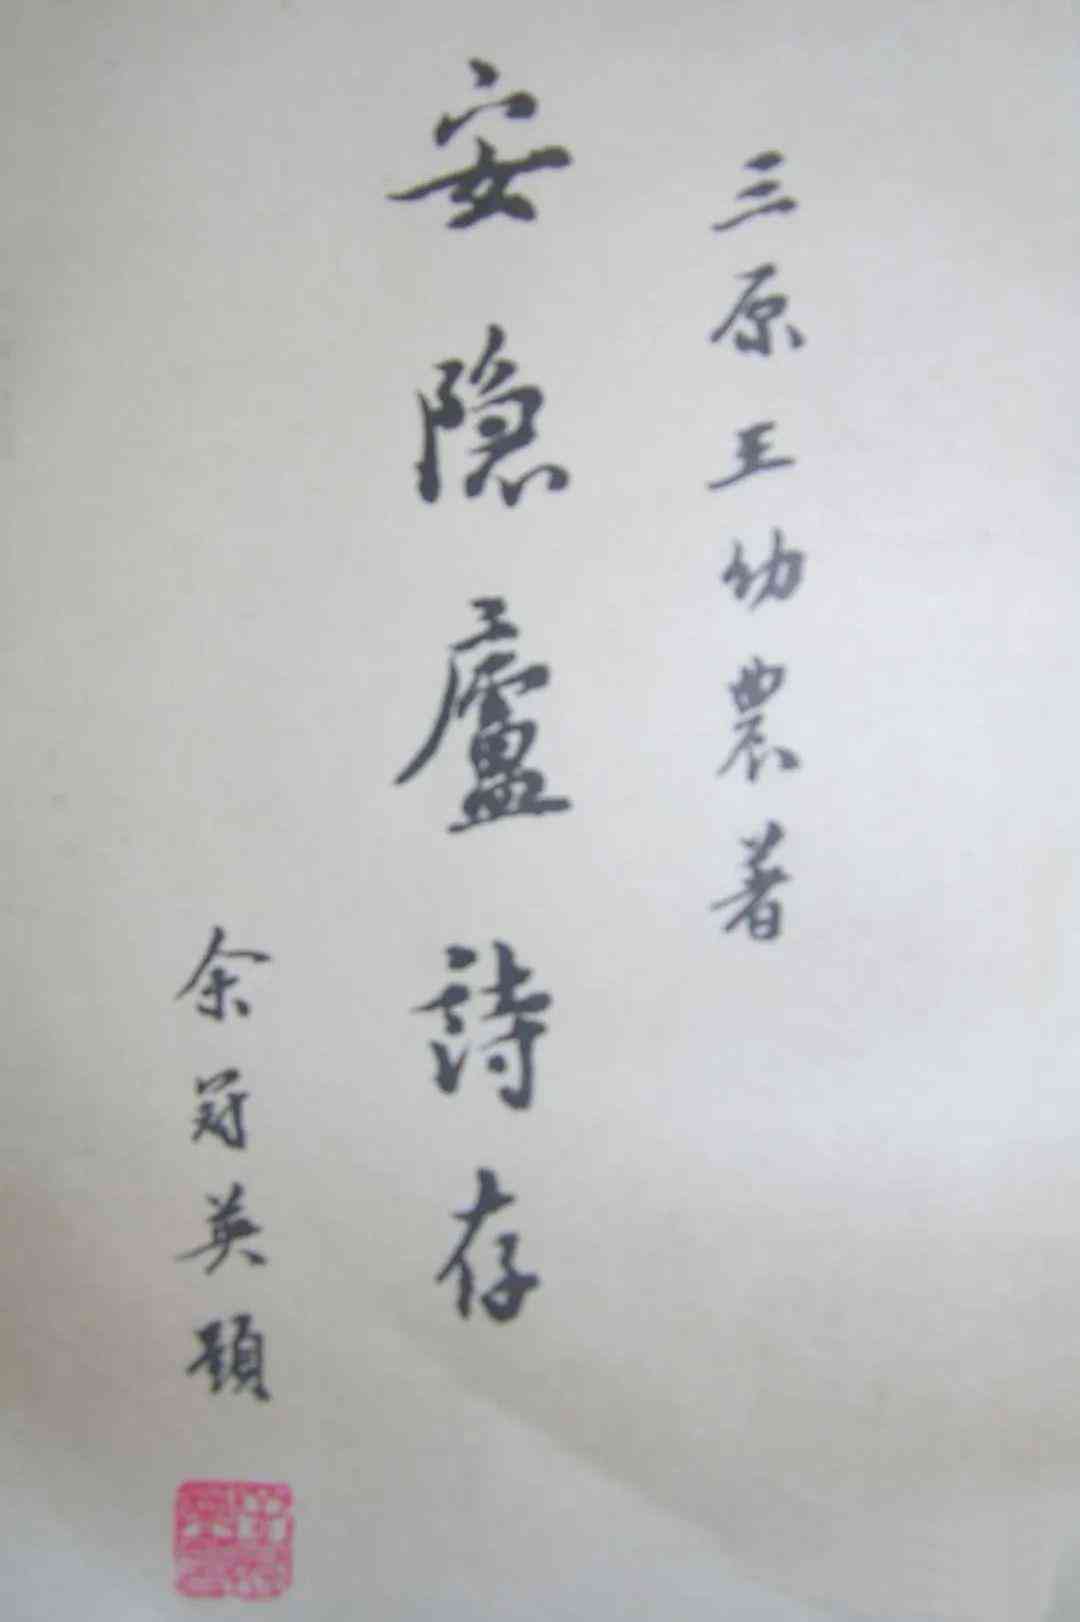 三原王幼農著
安隐廬詩存
余冠英題